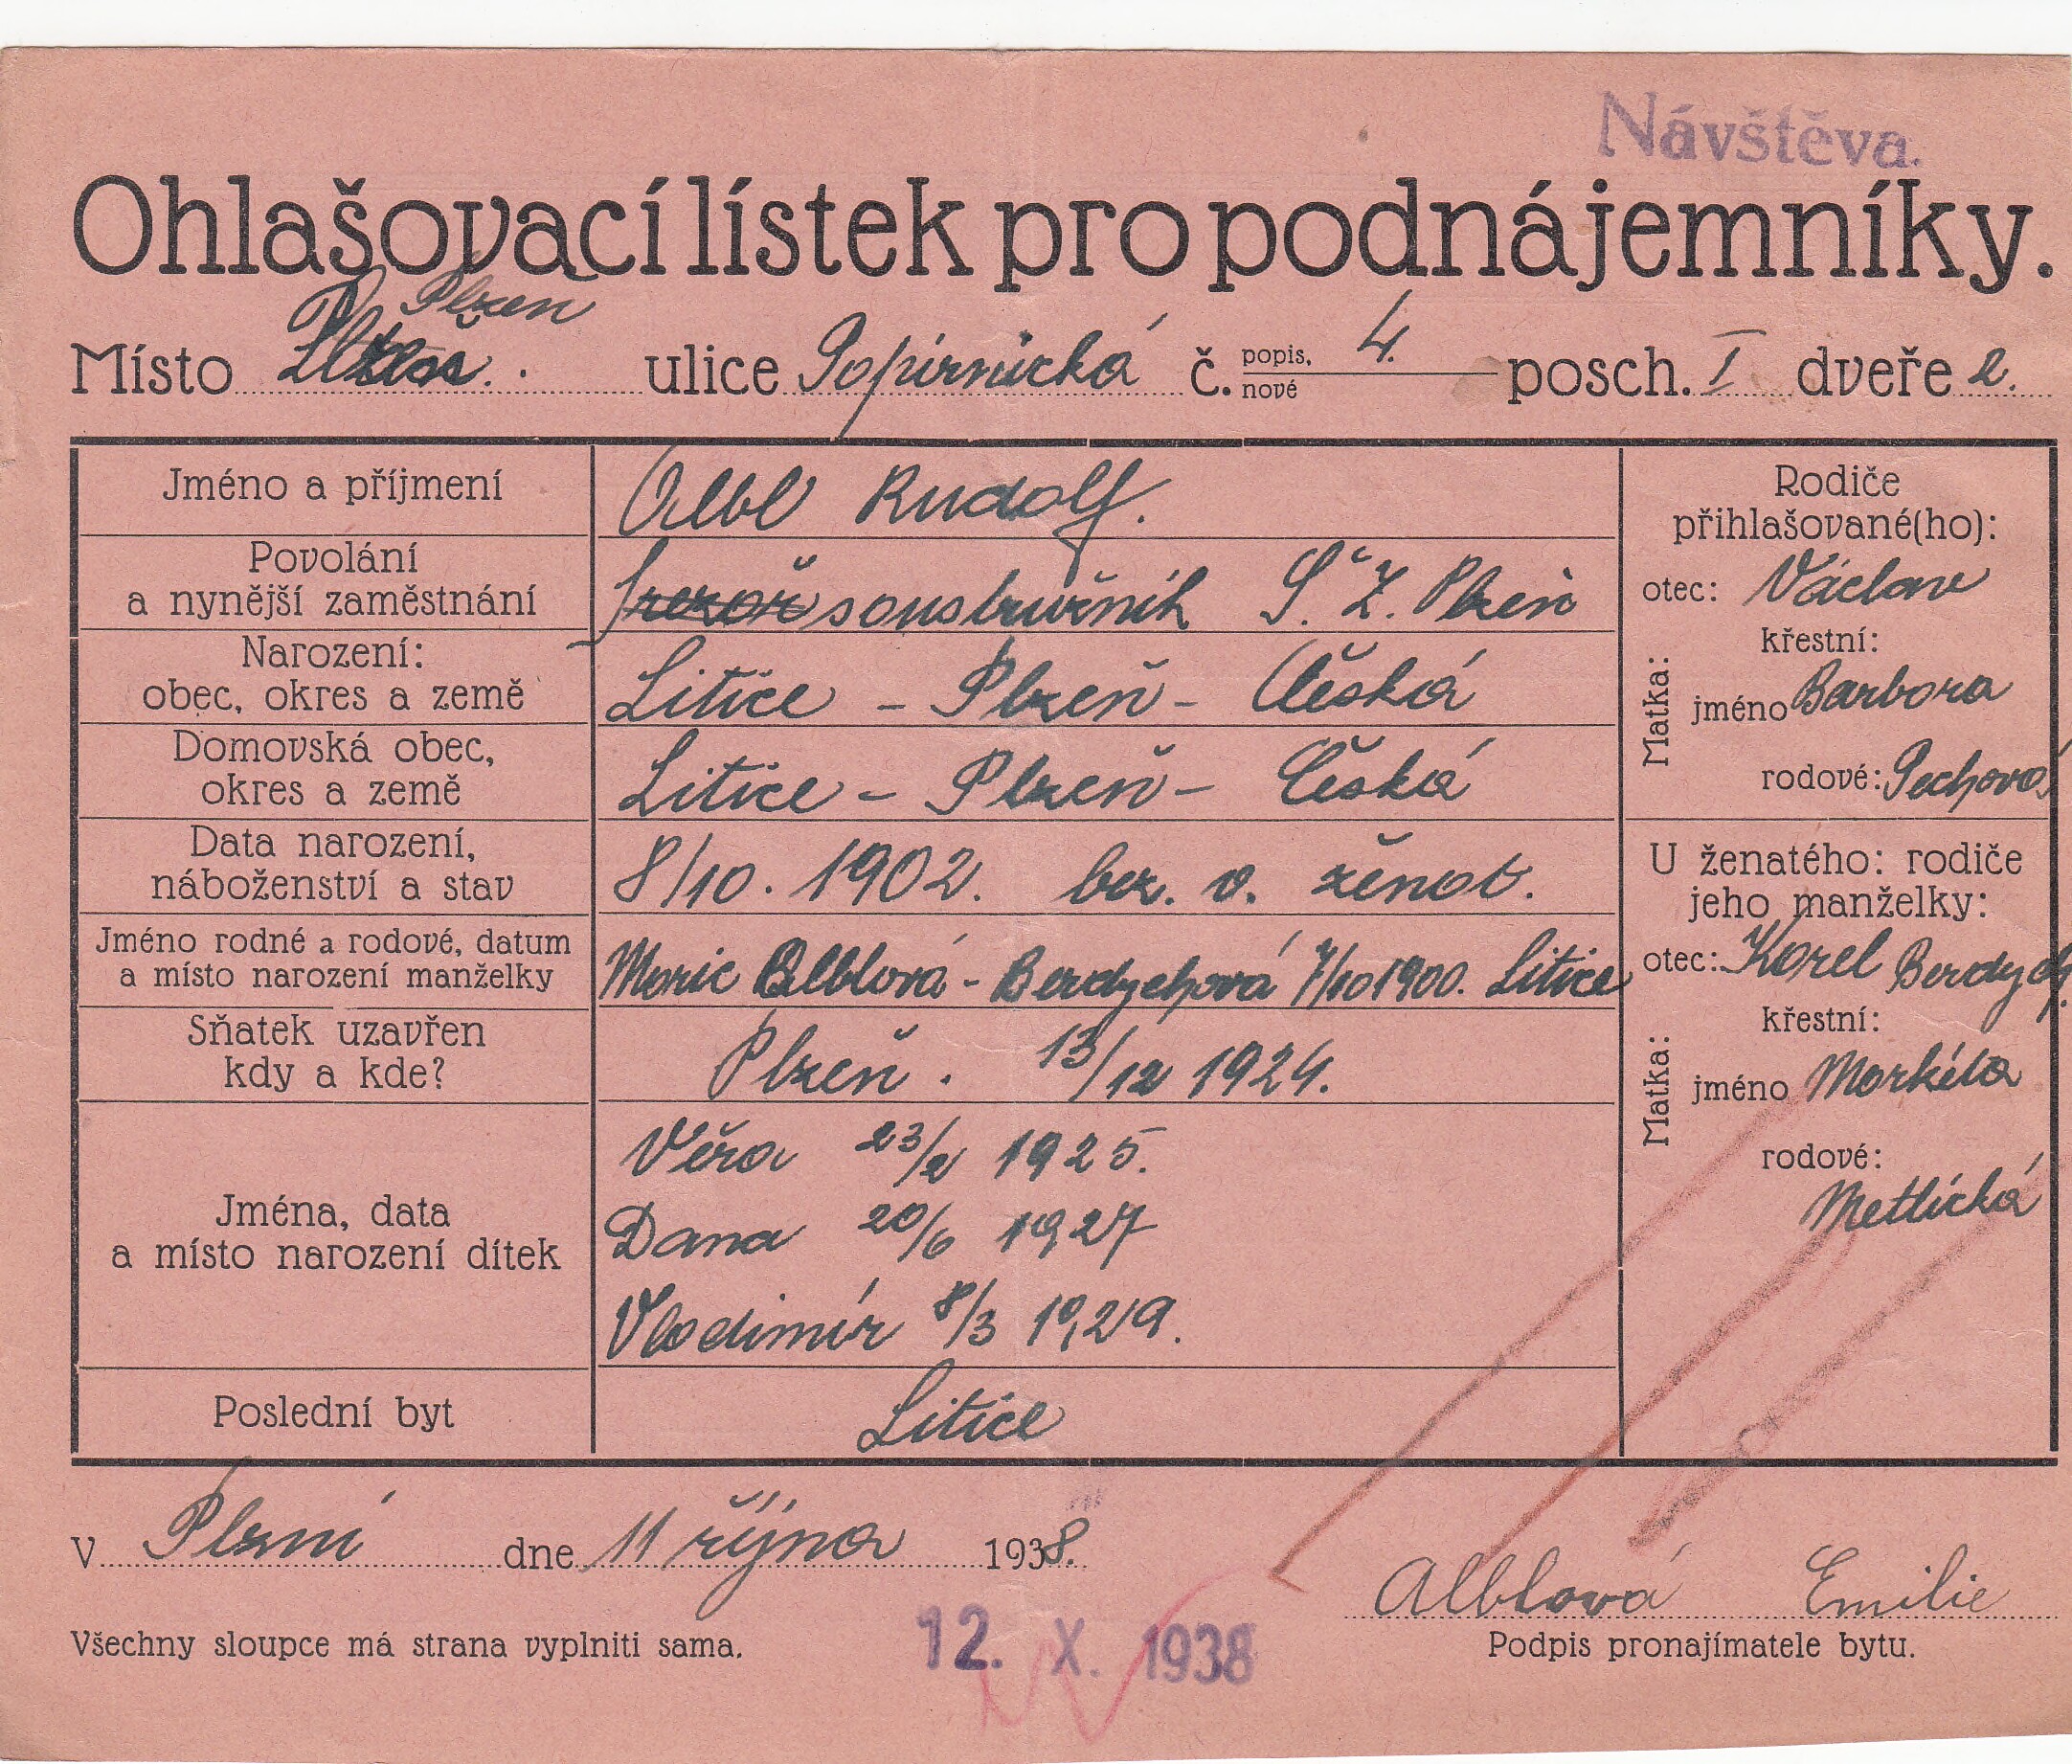 Návštěva.
Ohlašovací lístek pro podnájemníky.
Plzen
Místo ulice Papírnická č. popis. nové 4. posch. I dveře 2.
Jméno a příjmení Albl Rudolf.
Povolání
a nynější zaměstnání frezař soustružník Š. Z. Plzeň
Narození:
obec, okres a země Litice – Plzeň – Česká
Domovská obec,
okres a země Litice – Plzeň – Česká
Data narození,
náboženství a stav 8/10. 1902. bez. v. ženat.
Jméno rodné a rodové, datum
a místo narození manželky Marie Alblová - Berdychová 7/10 1900. Litice
Sňatek uzavřen
kdy a kde? Plzeň. 13/12 1924.
Jména, data
a místo narození dítek
Věra 23/2 1925.
Dana 20/6 1927
Vladimír 8/3 1929.
Poslední byt Litice
Rodiče
přihlašované(ho):
otec: Václav
Matka:
křestní:
jméno Barbora
rodové: Pechová
U ženatého: rodiče
jeho manželky:
otec: Karel Berdych
Matka:
křestní:
jméno Markéta
rodové:
Metlická
V Plzni dne 11 října 1938.
Alblová Emilie
Všechny sloupce má strana vyplniti sama.
12. X. 1938
Podpis pronajímatele bytu.